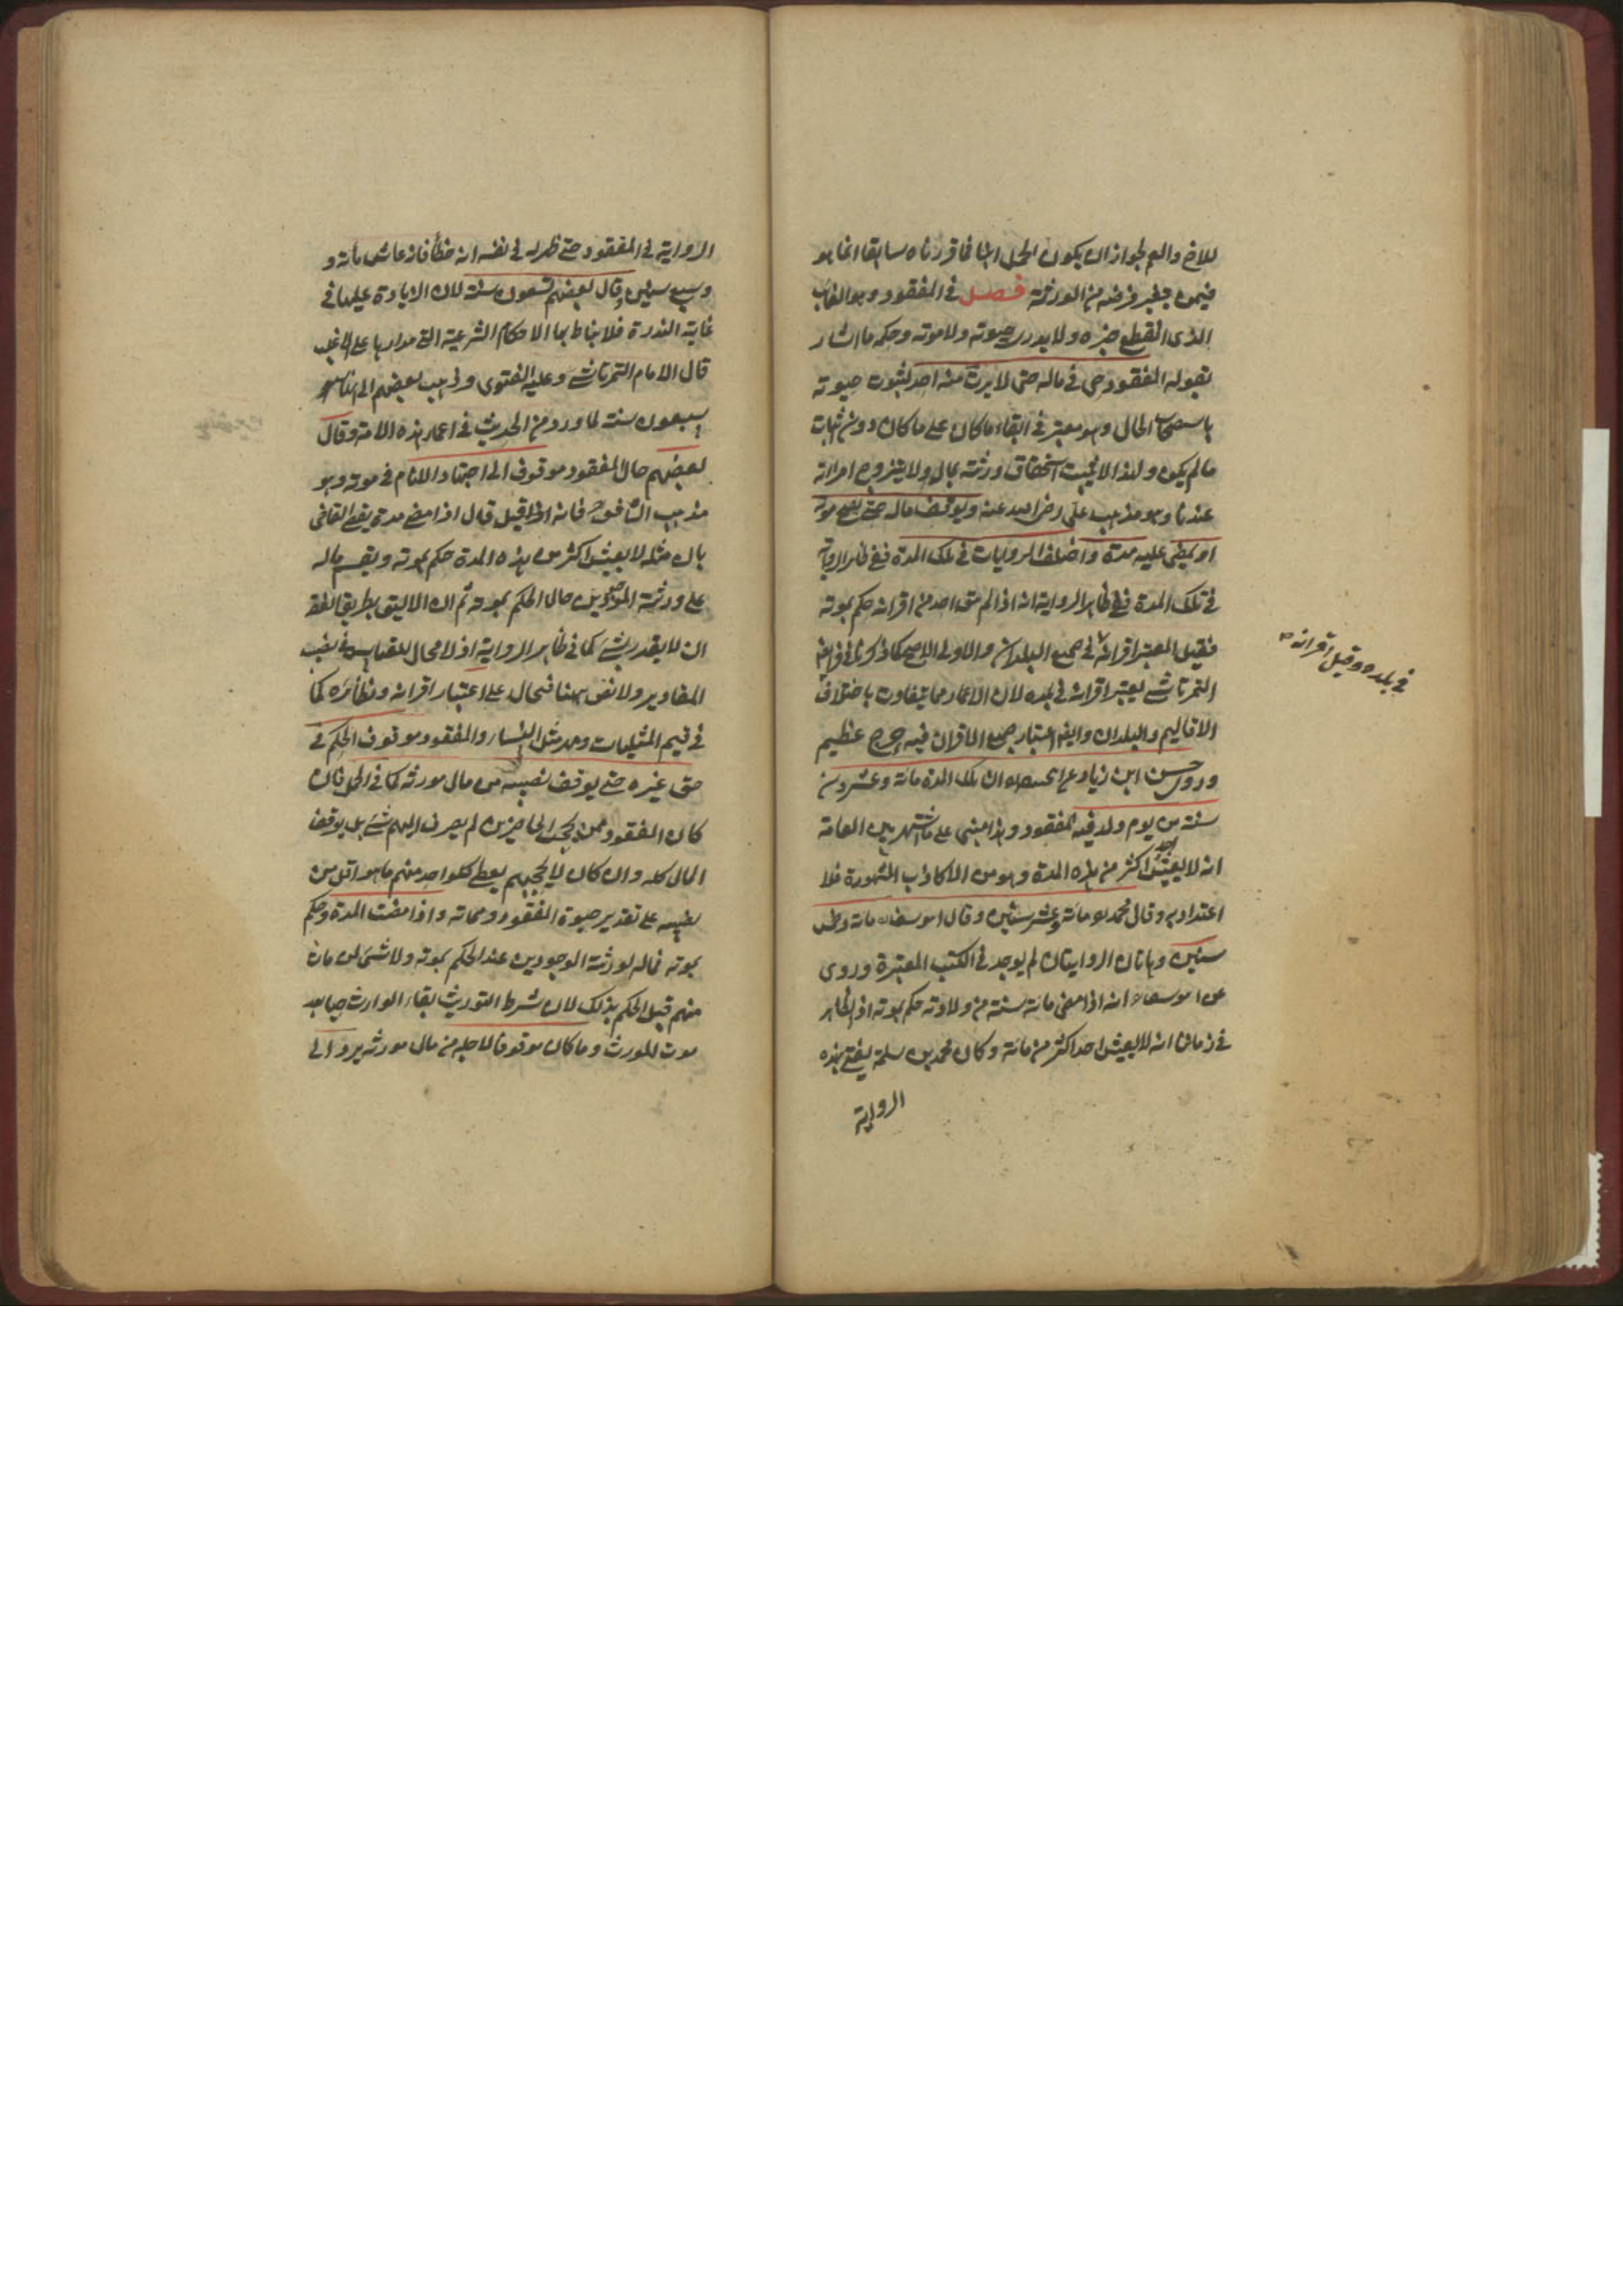 للاخ والعم لجواز ان يكون الحمل ابنا فما قررناه سابقا انما هو
فيمن يتغير فرضه من الورثة فصل في المفقود وهو الغائب
الذى انقطع خبره ولا يدرى حيوته ولا موته وحكمه ما اشار
بقوله المفقود حى في ماله حتى لا يرث منه احد لثبوت حيوته
باستصحاب الحال وهو معتبر في ابقاء ما كان على ما كان دون اثبات
ما لم يكن ولهذا لا يجب استحقاق ورثته بماله ولا يتزوج امراته
عندنا وهو مذهب على رضى الله عنه ويوقف ماله حتى يصح موته
او يمضى عليه مدة واختلف الروايات في تلك المدة ففي ظاهر الرواية
في تلك المدة ففي ظاهر الرواية انه اذا لم يبق احد من اقرانه حكم بموته
فقيل المعتبر اقرانه في جميع البلدان والاول اصح كما ذكر في فرائض
التمرتاشى يعتبر اقرانه في بلده لان الاعمار مما يتفاوت باختلاف
الاقاليم والبلدان وايضا اعتبار جميع الاقران فيه حرج عظيم
وروى حسن ابن زياد عن ان تلك المدة مائة وعشرون
سنة من يوم ولد فيه المفقود وهذا مبنى على ما اشتهر بين العامة
انه لا يعيش احد اكثر من هذه المدة وهو من الاكاذيب المشهورة فلا
اعتداد به وقال محمد هو مائة وعشر سنين وقال ابو يوسف مائة وخمس
سنين وهاتان الروايتان لم يوجد في الكتب المعتبرة وروى
عن ابو يوسف انه اذا مضى مائة سنة من ولادته حكم بموته اذ الظاهر
في زماننا انه لا يعيش احد اكثر من مائة وكان محمد بن سلمة يفتى بهذه
الرواية
في بلده وقيل اقرانه
الرواية في المفقود حتى ظهر له في نفسه انه خطأ فانه عاش مائة و
وسبع سنين وقال بعضهم تسعون سنة لان الزيادة عليها في
غاية الندرة فلا يناط بها الاحكام الشرعية التى مدارها على الاغلب
قال الامام التمرتاشى وعليه الفتوى وذهب بعضهم الى انها
سبعون سنة لما ورد من الحديث في اعمار هذه الامة وقال
بعضهم حال المفقود موقوف الى اجتهاد الامام في موته وهو
مذهب الشافعى فانه قال اذا مضى مدة يقضى القاضى
بان مثله لا يعيش اكثر من هذه المدة حكم بموته ويقسم ماله
على ورثته الموجودين حال الحكم بموته ثم ان الاليق بطريق الفقه
ان لا يقدر بشئ كما في ظاهر الرواية اذ لا مجال للقياس في نصب
المقادير ولا نص ههنا فيحال على اعتبار اقرانه ونظائره كما
في قيم المثليات ومهر مثل النساء والمفقود موقوف الحكم في
حق غيره حتى يوقف نصيبه من مال مورثه كما في الحمل فان
كان المفقود ممن يحجب الحاضرين لم يصرف اليهم شئ بل يوقف
المال كله وان كان لا يحجبهم يعطى كلواحد منهم ما هو اقل من
نصيبه على تقدير حيوة المفقود ومماته واذا مضت المدة وحكم
بموته فماله لورثته الموجودين عند الحكم بموته ولا شئ لمن مات
منهم قبل الحكم بذلك لان شرط التوريث بقاء الوارث حيا بعد
موت المورث وما كان موقوفا لاجله من مال مورثه يرد الى